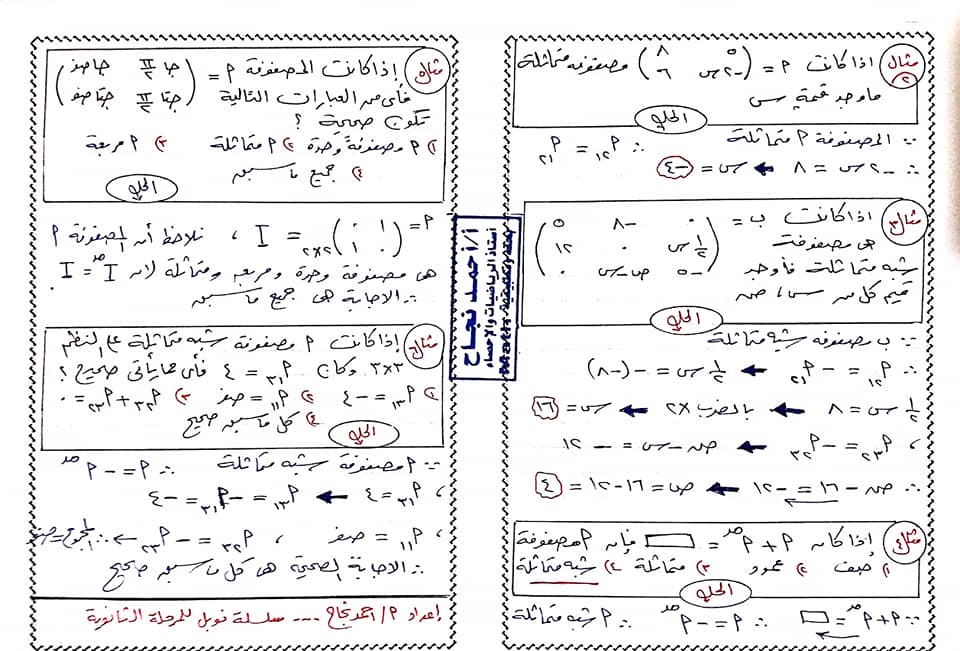 مثال ٢ إذا كانت P = (٥ ٨ / -٢س ٦) مصفوفة متماثلة
فأوجد قيمة س
الحل
∵ المصفوفة P متماثلة ∴ P١٢ = P٢١
∴ -٢س = ٨ ← س = -٤
مثال ٣ إذا كانت ب = (٠ -٨ ٥ / ½ س ٠ ١٢ / -٥ ص-س ٠)
هى مصفوفة
شبه متماثلة فأوجد
قيم كل من س، ص
الحل
ب مصفوفة شبه متماثلة
∴ P١٢ = -P٢١ ← ½ س = -(-٨)
½ س = ٨ ← بالضرب ×٢ ← س = ١٦
، P٢٣ = -P٣٢ ← ص-س = -١٢
∴ ص-١٦ = -١٢ ← ص = ١٦-١٢ = ٤
مثال ٤ إذا كان P + Pمد = □ فإن P مصفوفة
١ صف ٢ عمود ٣ متماثلة ٤ شبه متماثلة
الحل
∵ P + Pمد = □ ∴ P = -Pمد ∴ P شبه متماثلة
أ/أحمد نجاح
أستاذ الرياضيات والإحصاء
مثال ٥ إذا كانت المصفوفة P = (جا π/٢ جا صفر / جتا π/٢ جتا صفر)
فأى من العبارات التالية
تكون صحيحة ؟
١ P مصفوفة وحدة ٢ P متماثلة ٣ P مربعة
٤ جميع ما سبق
الحل
P = (١ ٠ / ٠ ١) = I٢×٢ ، نلاحظ أن المصفوفة P
هى مصفوفة وحدة ومربعة ومتماثلة لأن Iمد = I
∴ الاجابة هى جميع ما سبق
إذا كانت P مصفوفة شبه متماثلة على النظم
٣×٣ وكان P٣١ = ٤ فأى مما يأتى صحيح ؟
١ P١٣ = -٤ ٢ P١١ = صفر ٣ P٣٢ + P٢٣ = ٠
٤ كل ما سبق صحيح
الحل
∵ P مصفوفة شبه متماثلة ∴ P = -Pمد
، P٣١ = ٤ ← P١٣ = -P٣١ = -٤
P١١ = صفر ، P٣٢ = -P٢٣ ← ∴ المجموع = صفر
∴ الاجابة الصحيحة هى كل ما سبق صحيح
إعداد P/أحمد نجاح --- سلسلة نوبل للمرحلة الثانوية